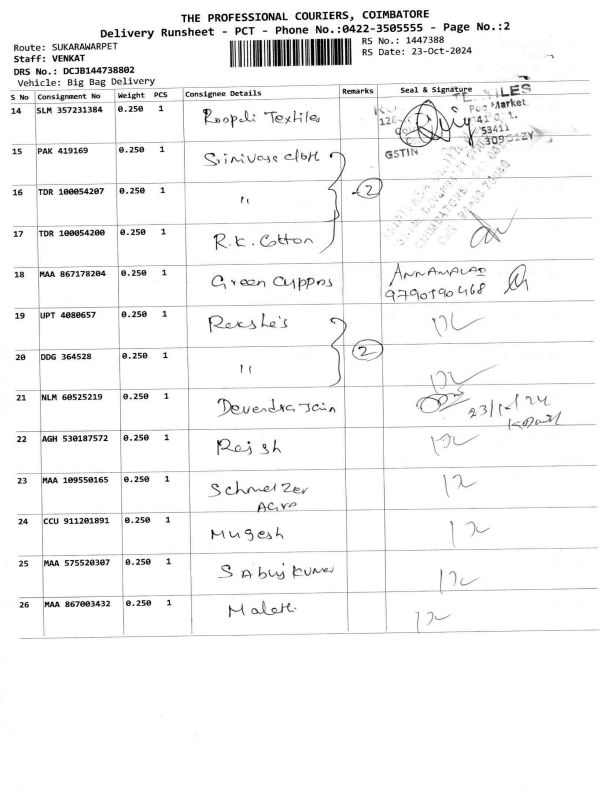 THE PROFESSIONAL COURIERS, COIMBATORE
Delivery Runsheet - PCT - Phone No.:0422-3505555 - Page No.:2
Route: SUKARAWARPET
RS No.: 1447388
Staff: VENKAT
RS Date: 23-Oct-2024
DRS No.: DCJB144738802
Vehicle: Big Bag Delivery
S No Consignment No Weight PCS Consignee Details Remarks Seal & Signature
14 SLM 357231384 0.250 1 Roopali Textiles
15 PAK 419169 0.250 1 Srinivasa cloth
GSTIN
16 TDR 100054207 0.250 1 " 2
17 TDR 100054200 0.250 1 R.K. Cotton
18 MAA 867178204 0.250 1 Green Cuppas ANNAMALAI
9790590468
19 UPT 4080657 0.250 1 Raksha's
20 DDG 364528 0.250 1 " 2
21 NLM 60525219 0.250 1 Devendra Jain
23/10/24
22 AGH 530187572 0.250 1
23 MAA 109550165 0.250 1 Schmelzer
24 CCU 911201891 0.250 1 Mugesh
25 MAA 575520307 0.250 1
26 MAA 867003432 0.250 1 Malathi